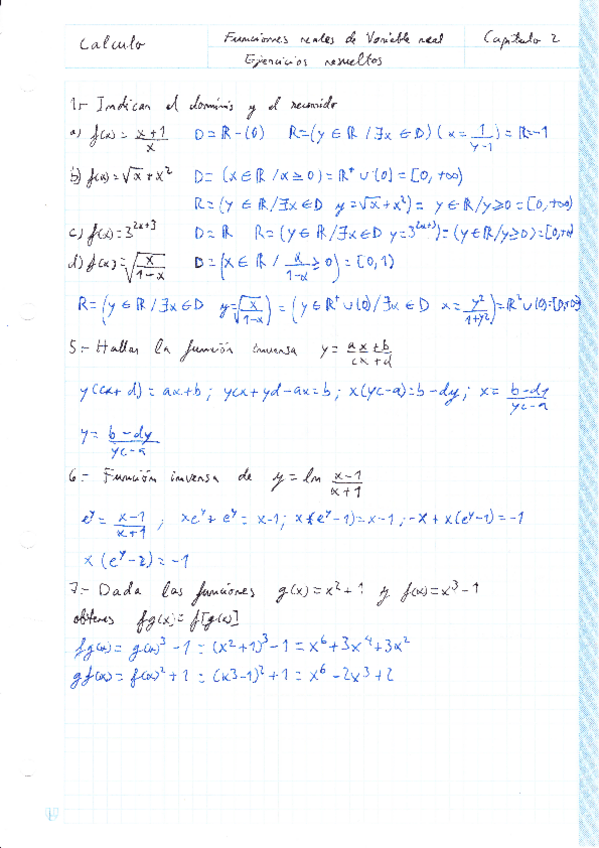 Calculo
Funciones reales de Variable real
Capitulo 2
Ejercicios resueltos
1.- Indicar el dominio y el recorrido
a) f(x) = x+1/x D = ℝ - (0) R = (y ∈ ℝ / ∃x ∈ D) (x = 1/y-1) = ℝ-1
b) f(x) = √x + x² D = (x ∈ ℝ / x ≥ 0) = ℝ⁺ ∪ (0) = [0, +∞)
R = (y ∈ ℝ / ∃x ∈ D y = √x + x²) = y ∈ ℝ / y ≥ 0 = [0, +∞)
c) f(x) = 3^(2x+3) D = ℝ R = (y ∈ ℝ / ∃x ∈ D y = 3^(2x+3)) = (y ∈ ℝ / y ≥ 0) = [0, +∞)
d) f(x) = √(x/1-x) D = (x ∈ ℝ / x/1-x ≥ 0) = [0, 1)
R = (y ∈ ℝ / ∃x ∈ D y = √(x/1-x)) = (y ∈ ℝ⁺ ∪ (0) / ∃x ∈ D x = y²/1+y²) = ℝ⁺ ∪ (0) = [0, +∞)
5.- Hallar la función inversa y = ax+b/cx+d
y(cx+d) = ax+b ; ycx + yd - ax = b ; x(yc-a) = b-dy ; x = b-dy/yc-a
y = b-dy/yc-a
6.- Función inversa de y = ln x-1/x+1
e^y = x-1/x+1 ; xe^y + e^y = x-1 ; x(e^y-1) = x-1 ; -x + x(e^y-1) = -1
x(e^y-2) = -1
7.- Dada las funciones g(x) = x²+1 y f(x) = x³-1
obtener fg(x) = f[g(x)]
fg(x) = g(x)³ - 1 = (x²+1)³ - 1 = x⁶ + 3x⁴ + 3x²
gf(x) = f(x)² + 1 = (x3-1)² + 1 = x⁶ - 2x³ + 2